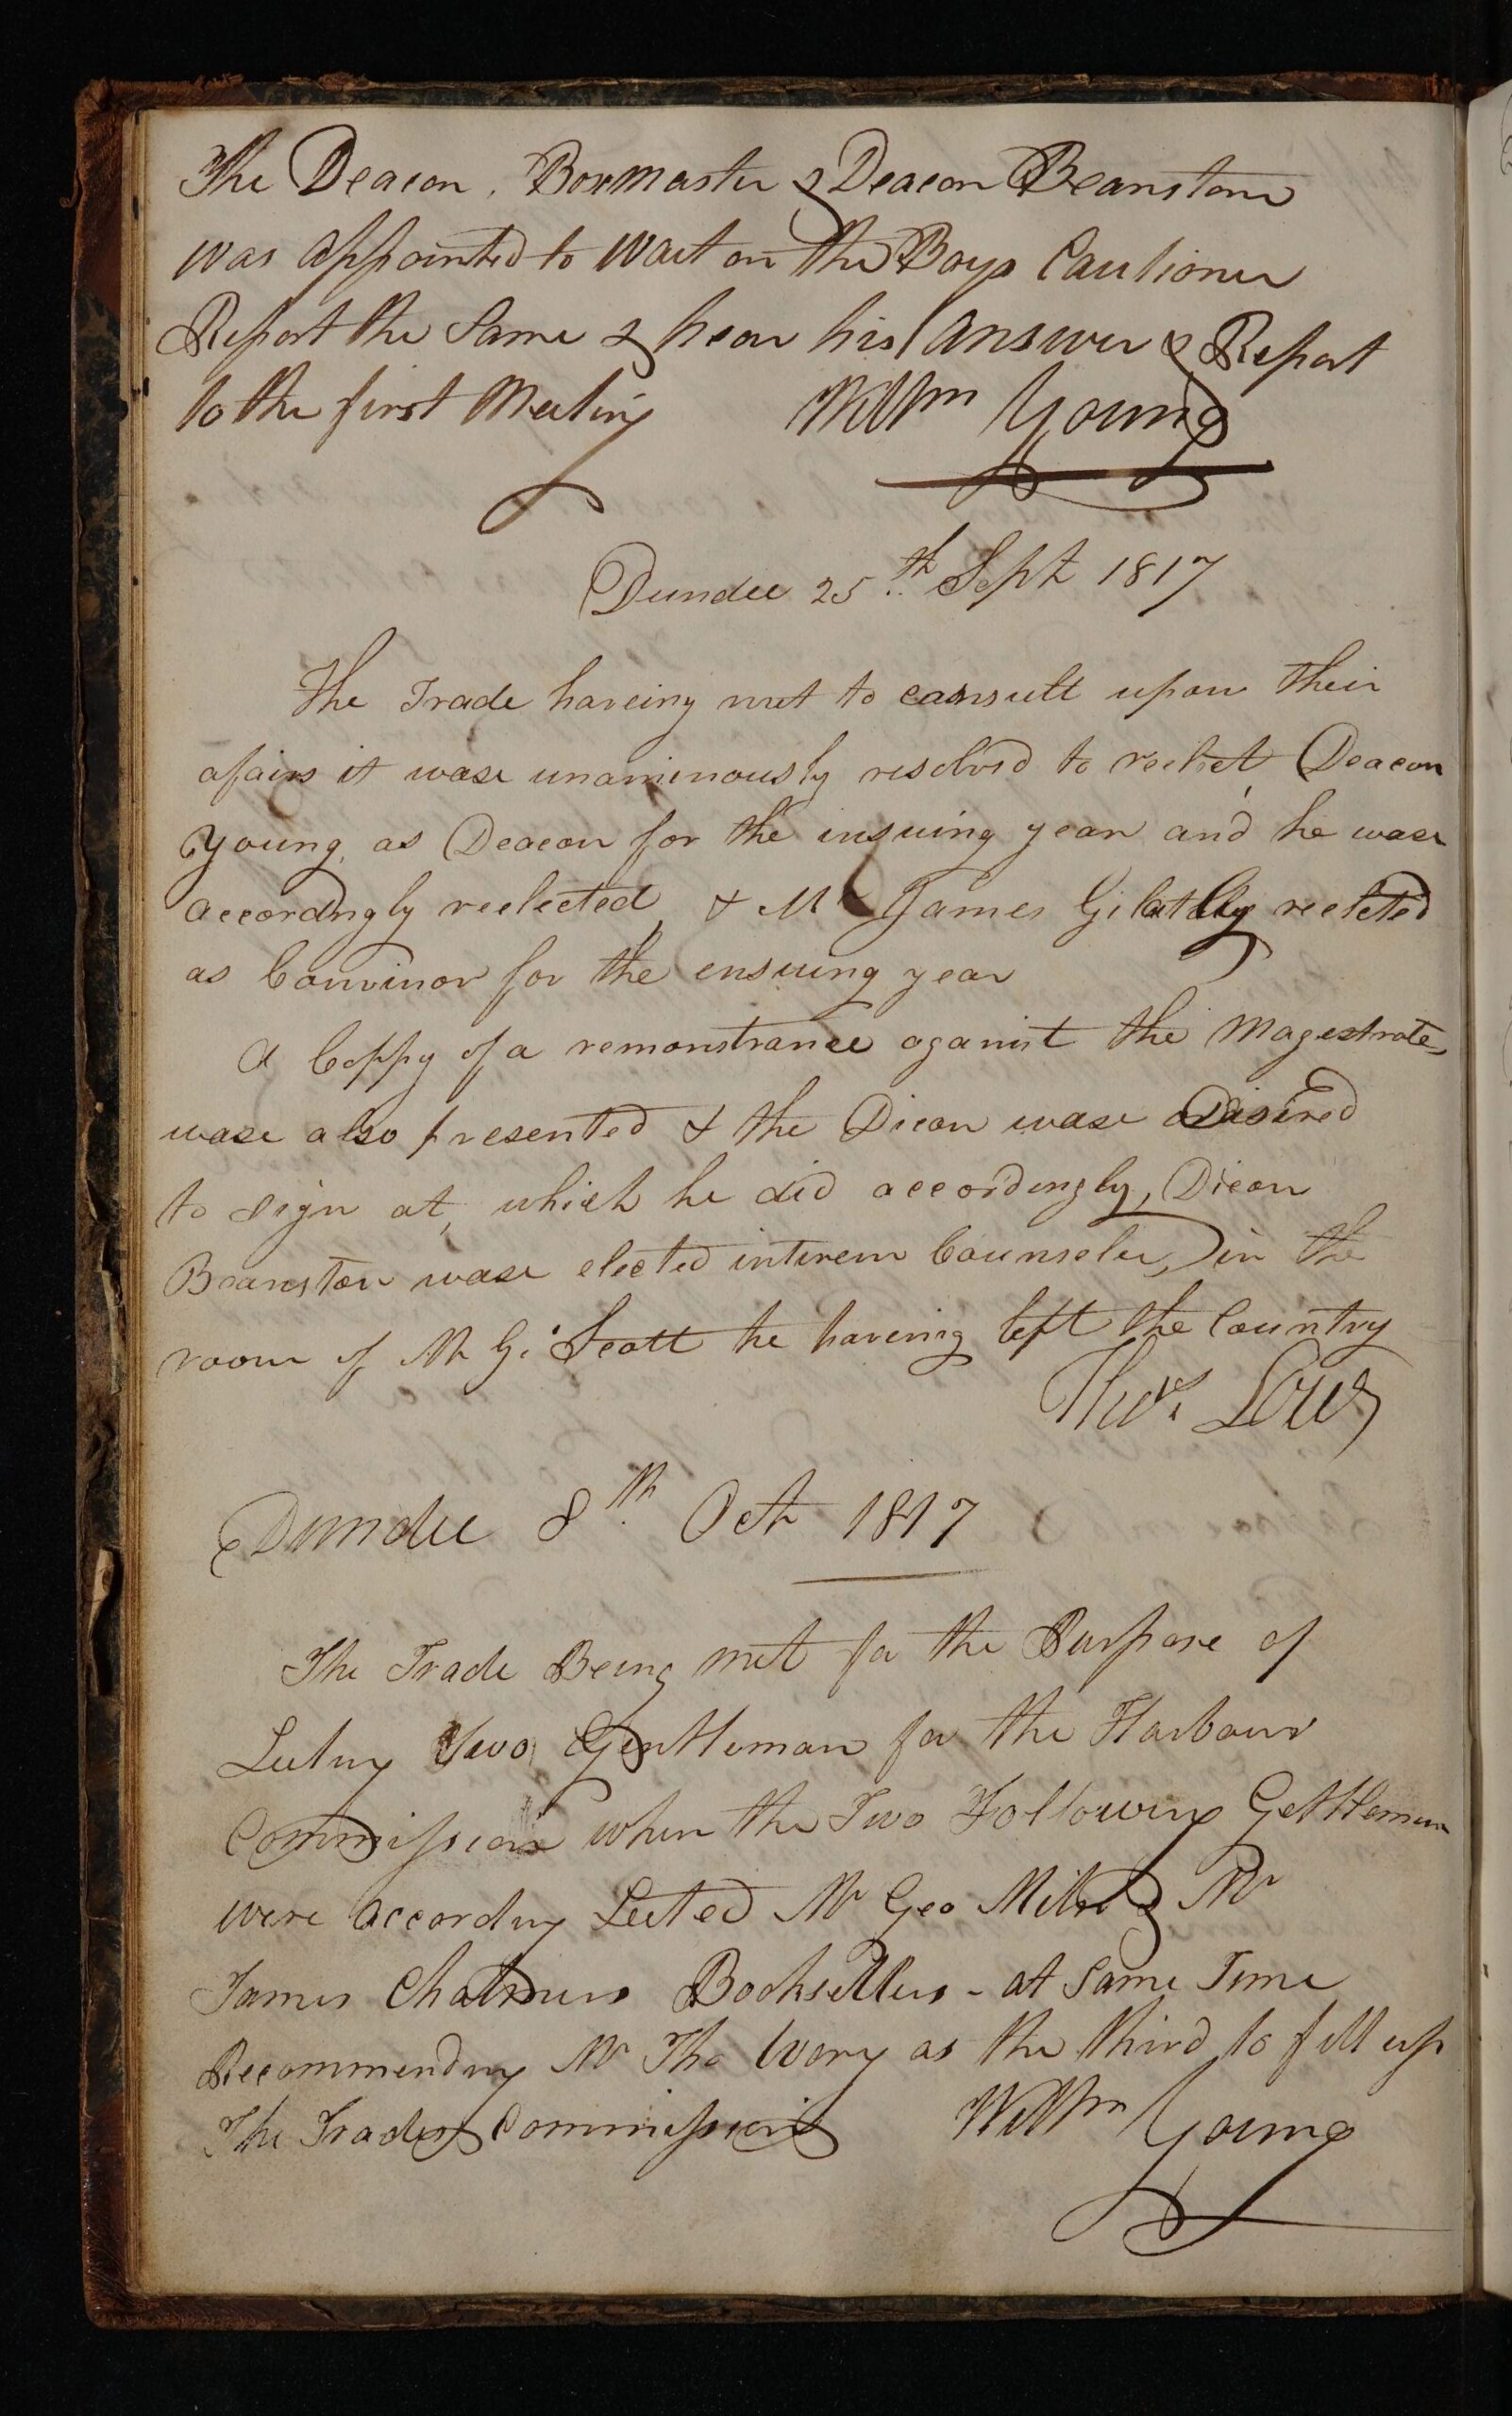 The Deacon, Boxmaster & Deacon Beanston
was appointed to Wait on the Boys Cautioner
Report the Same & hear his answer & Report
to the first Meeting Willm Young
Dundee 25th Sept 1817
The Trade haveing met to consult upon their
afairs it wase unaminously resolved to reelect Deacon
Young, as Deacon for the insuing year and he wase
accordingly reelected, & Mr James Gilatly reeleted
as Convinor for the ensuing year
A Coppy of a remonstrance against the Magestrates
wase also presented & the Dicon wase Desired
to sign at, which he did accordingly, Dicon
Beanston wase elected interem Counseler, in the
room of Mr G. Scott he haveing left the Country
Thos Low
Dundee 8th Oct 1817
The Trade Being met for the Purpose of
Leeting Two Gentleman for the Harbour
Commission when the Two Following Gettlemen
were according Leeted Mr Geo Miln & Mr
James Chalmers Booksellers - at Same Time
Recommending Mr Tho Ivory as the third to fill up
The Trades Commission Willm Young